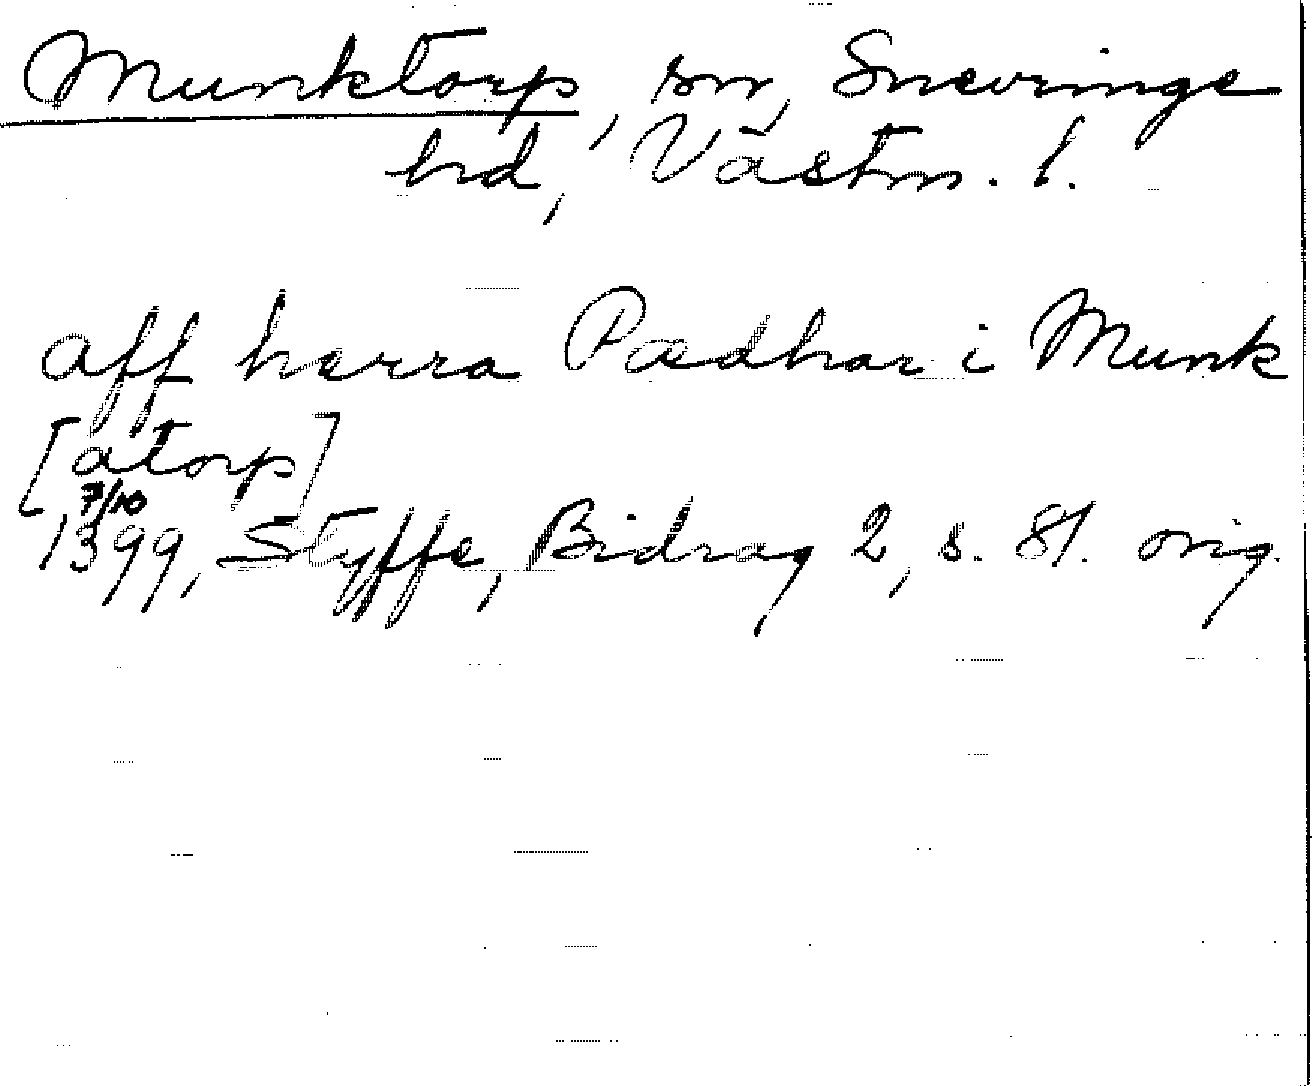 Munktorp, sn, Snevringe
hd, Västm. l.
aff herra Pædhar i Munk
[atorp]
7/10
1399, Styffe, Bidrag 2, s. 81. orig.